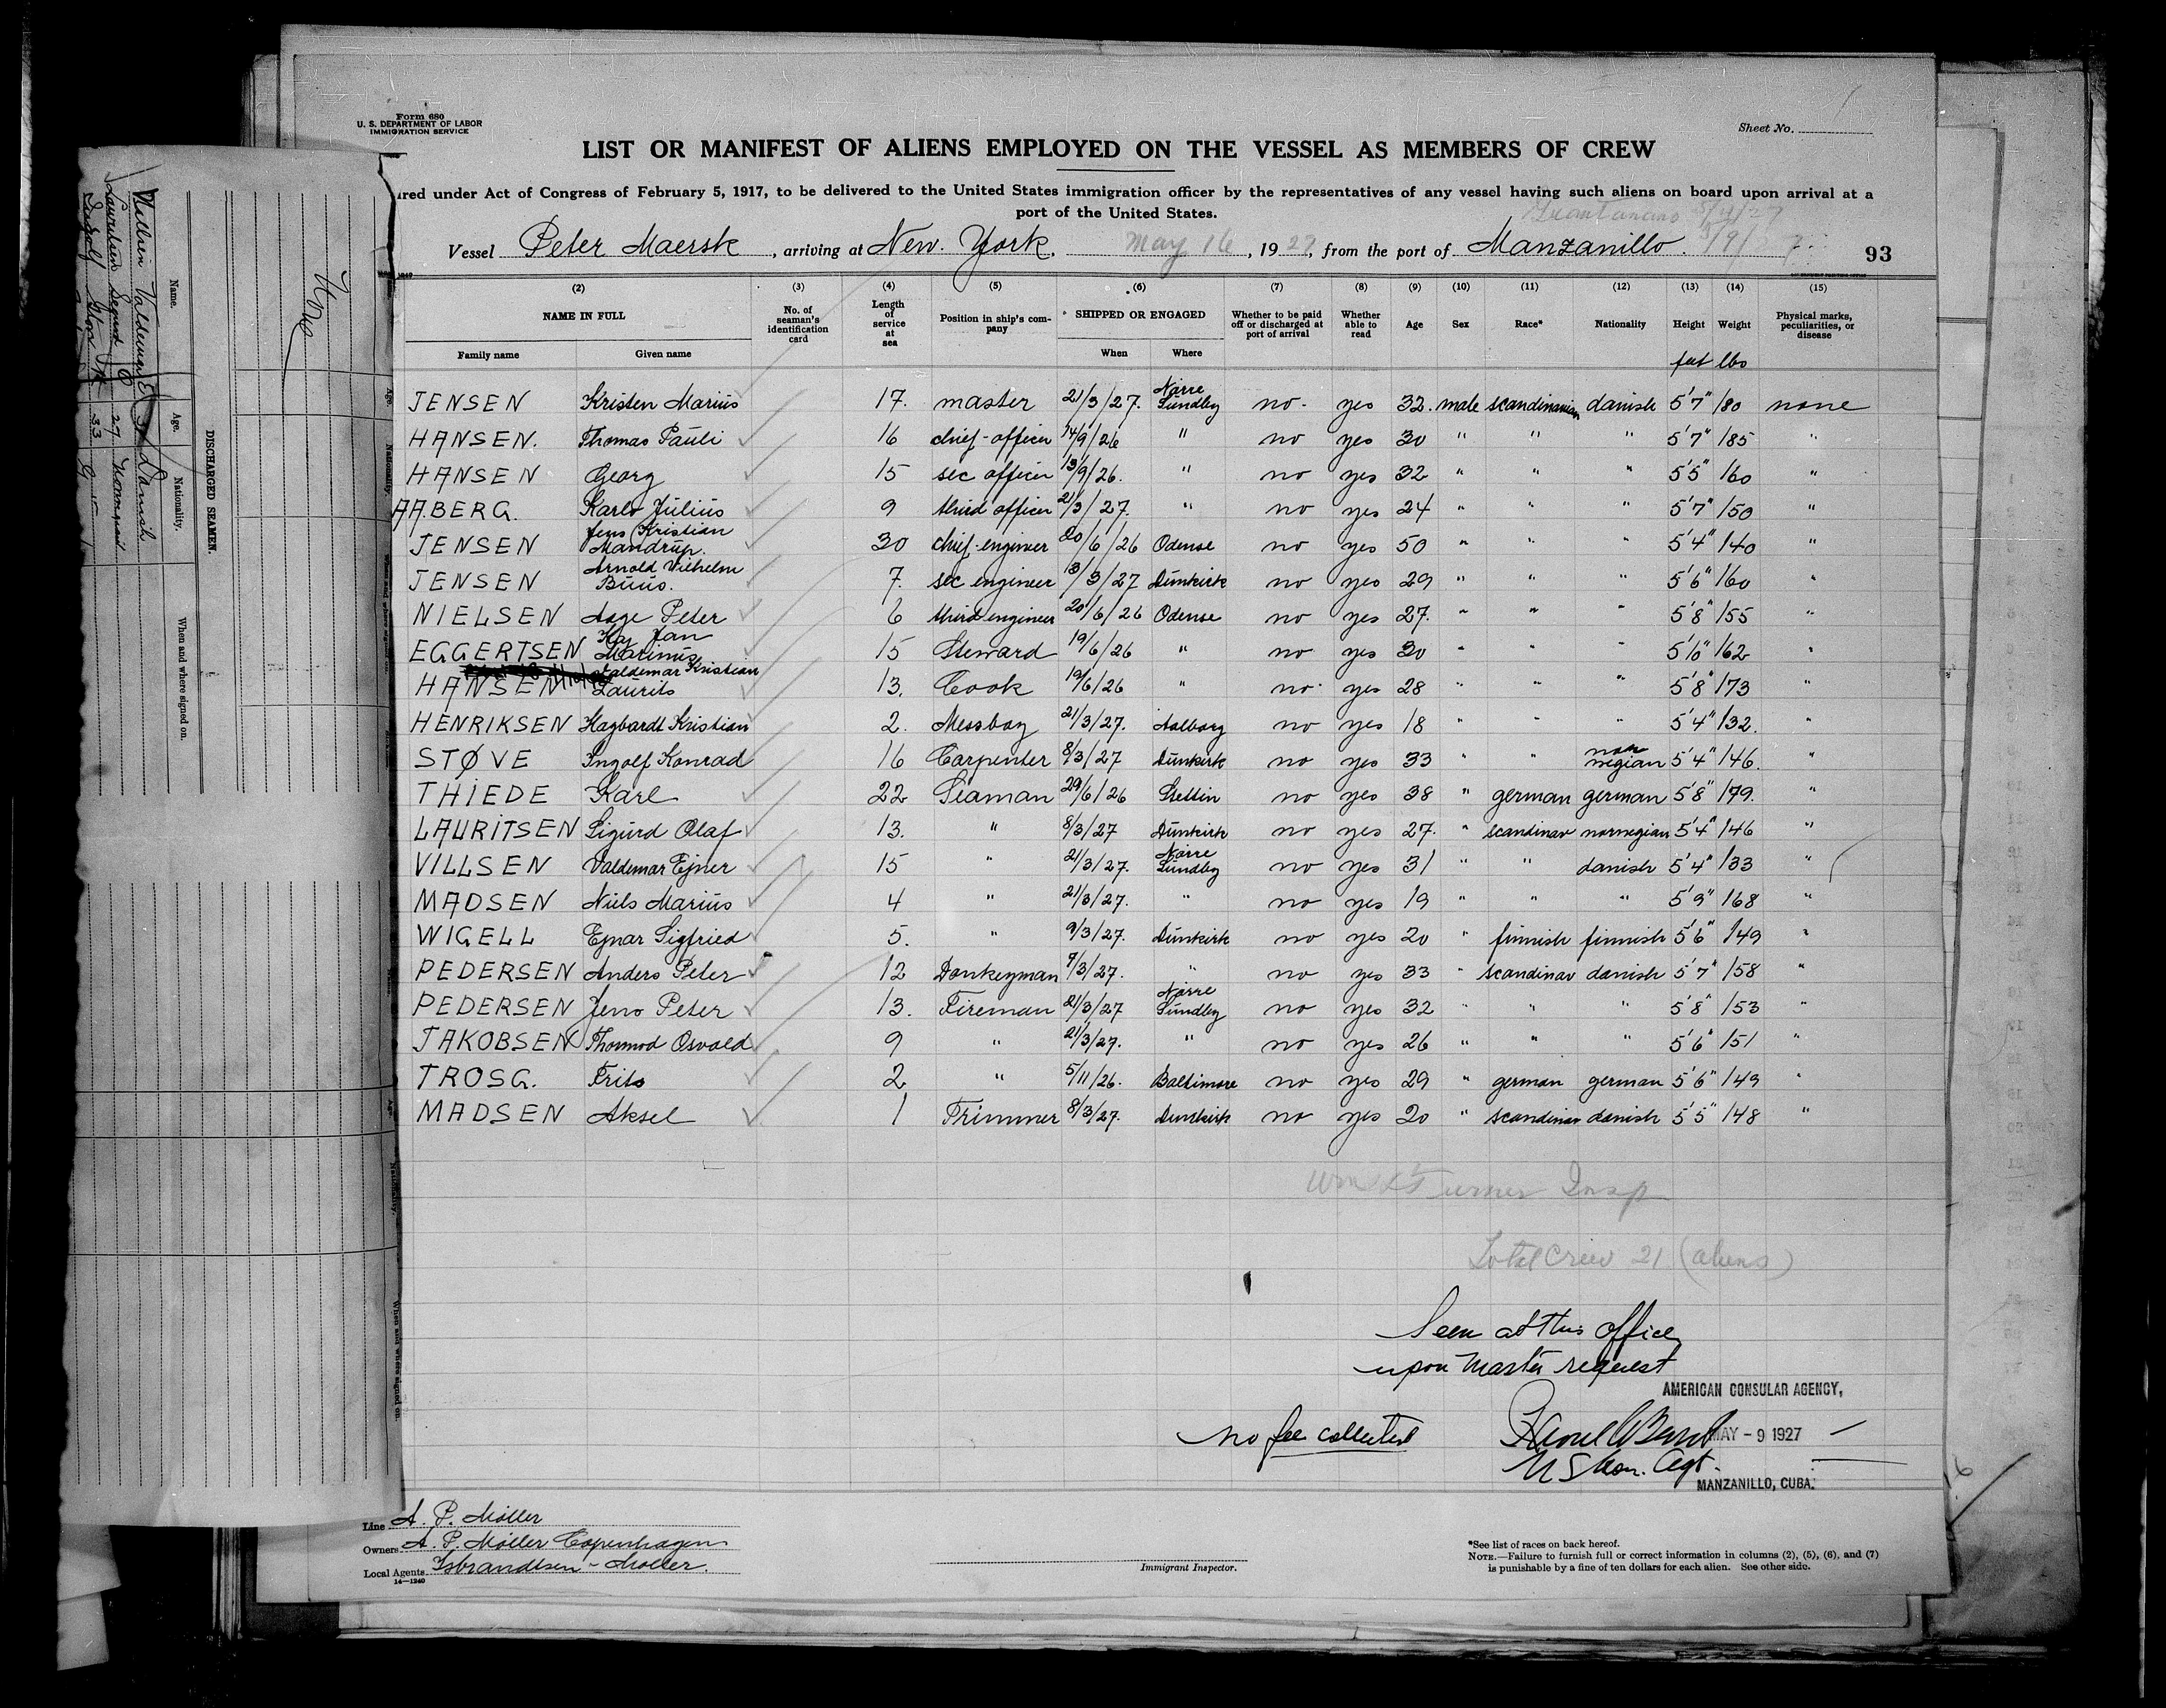 Form 680
U. S. DEPARTMENT OF LABOR
IMMIGRATION SERVICE
Sheet No.
LIST OR MANIFEST OF ALIENS EMPLOYED ON THE VESSEL AS MEMBERS OF CREW
ired under Act of Congress of February 5, 1917, to be delivered to the United States immigration officer by the representatives of any vessel having such aliens on board upon arrival at a
port of the United States.
Vessel Peter Maersk, arriving at New York, May 16, 1927, from the port of Manzanillo.
93
(2) (3) (4) (5) (6) (7) (8) (9) (10) (11) (12) (13) (14) (15)
NAME IN FULL No. of seaman's identification card Length of service at sea Position in ship's company SHIPPED OR ENGAGED Whether to be paid off or discharged at port of arrival Whether able to read Age Sex Race* Nationality Height Weight Physical marks, peculiarities, or disease
Family name Given name When Where feet lbs
JENSEN Kristen Marius 17. master 21/3/27. Nörre Sundby no. yes 32. male scandinavian danish 5'7" 180 none
HANSEN. Thomas Pauli 16 chief-officer 14/9/26 " no yes 30 " " " 5'7" 185 "
HANSEN Georg 15 sec officer 13/9/26. " no yes 32 " " " 5'5" 160 "
AABERG. Karlo Julius 9 third officer 21/3/27. " no yes 24 " " " 5'7" 150 "
JENSEN Jens Kristian Mandrup. 30 chief-engineer 20/6/26 Odense no yes 50 " " " 5'4" 140 "
JENSEN Arnold Vilhelm Buus. 7. sec engineer 13/3/27 Dunkirk no yes 29 " " " 5'6" 160 "
NIELSEN Aage Peter 6 third engineer 20/6/26 Odense no yes 27. " " " 5'8" 155 "
EGGERTSEN Kaj Jan Marinus 15 Steward 19/6/26 " no yes 30 " " " 5'10" 162 "
HANSEN Valdemar Kristian Laurits 13. Cook 19/6/26 " no. yes 28 " " " 5'8" 173 "
HENRIKSEN Hagbardt Kristian 2. Messboy 21/3/27. Aalborg no yes 18 " " " 5'4" 132. "
STØVE Ingolf Konrad 16 Carpenter 8/3/27 Dunkirk no yes 33 " " norwegian 5'4" 146. "
THIEDE Karl 22 Seaman 29/6/26 Stettin no yes 38 " german german 5'8" 179. "
LAURITSEN Sigurd Olaf 13. " 8/3/27 Dunkirk no yes 27. " scandinav norwegian 5'4" 146 "
VILLSEN Valdemar Ejner 15 " 21/3/27. Nörre Sundby no yes 31 " " danish 5'4" 133 "
MADSEN Niels Marius 4 " 21/3/27. " no yes 19 " " " 5'9" 168 "
WIGELL Ejnar Sigfried 5. " 9/3/27. Dunkirk no yes 20 " finnish finnish 5'6" 149 "
PEDERSEN Anders Peter 12 Donkeyman 7/3/27. " no yes 33 " scandinav danish 5'7" 158 "
PEDERSEN Jens Peter 13. Fireman 21/3/27 Nörre Sundby no yes 32 " " " 5'8" 153 "
JAKOBSEN Thormod Osvald 9 " 21/3/27. " no yes 26 " " " 5'6" 151 "
TROSG. Frits 2 " 5/11/26. Baltimore no yes 29 " german german 5'6" 149 "
MADSEN Aksel 1 Trimmer 8/3/27. Dunkirk no yes 20 " scandinav danish 5'5" 148 "
Turner Insp
Total Crew 21 (aliens)
Seen at this office
upon Master request
AMERICAN CONSULAR AGENCY,
no fee collected
MAY - 9 1927
U S Con. Agt.
MANZANILLO, CUBA.
Line A. P. Möller
Owners A. P. Möller Copenhagen
Local Agents Isbrandtsen - Moller.
14—1240
Immigrant Inspector.
*See list of races on back hereof.
NOTE.—Failure to furnish full or correct information in columns (2), (5), (6), and (7)
is punishable by a fine of ten dollars for each alien. See other side.
DISCHARGED SEAMEN.
Name. Age. Nationality. When and where signed on.
Valdemar E 31 Danish
Lauritsen Sigurd O 27
Ingolf 33